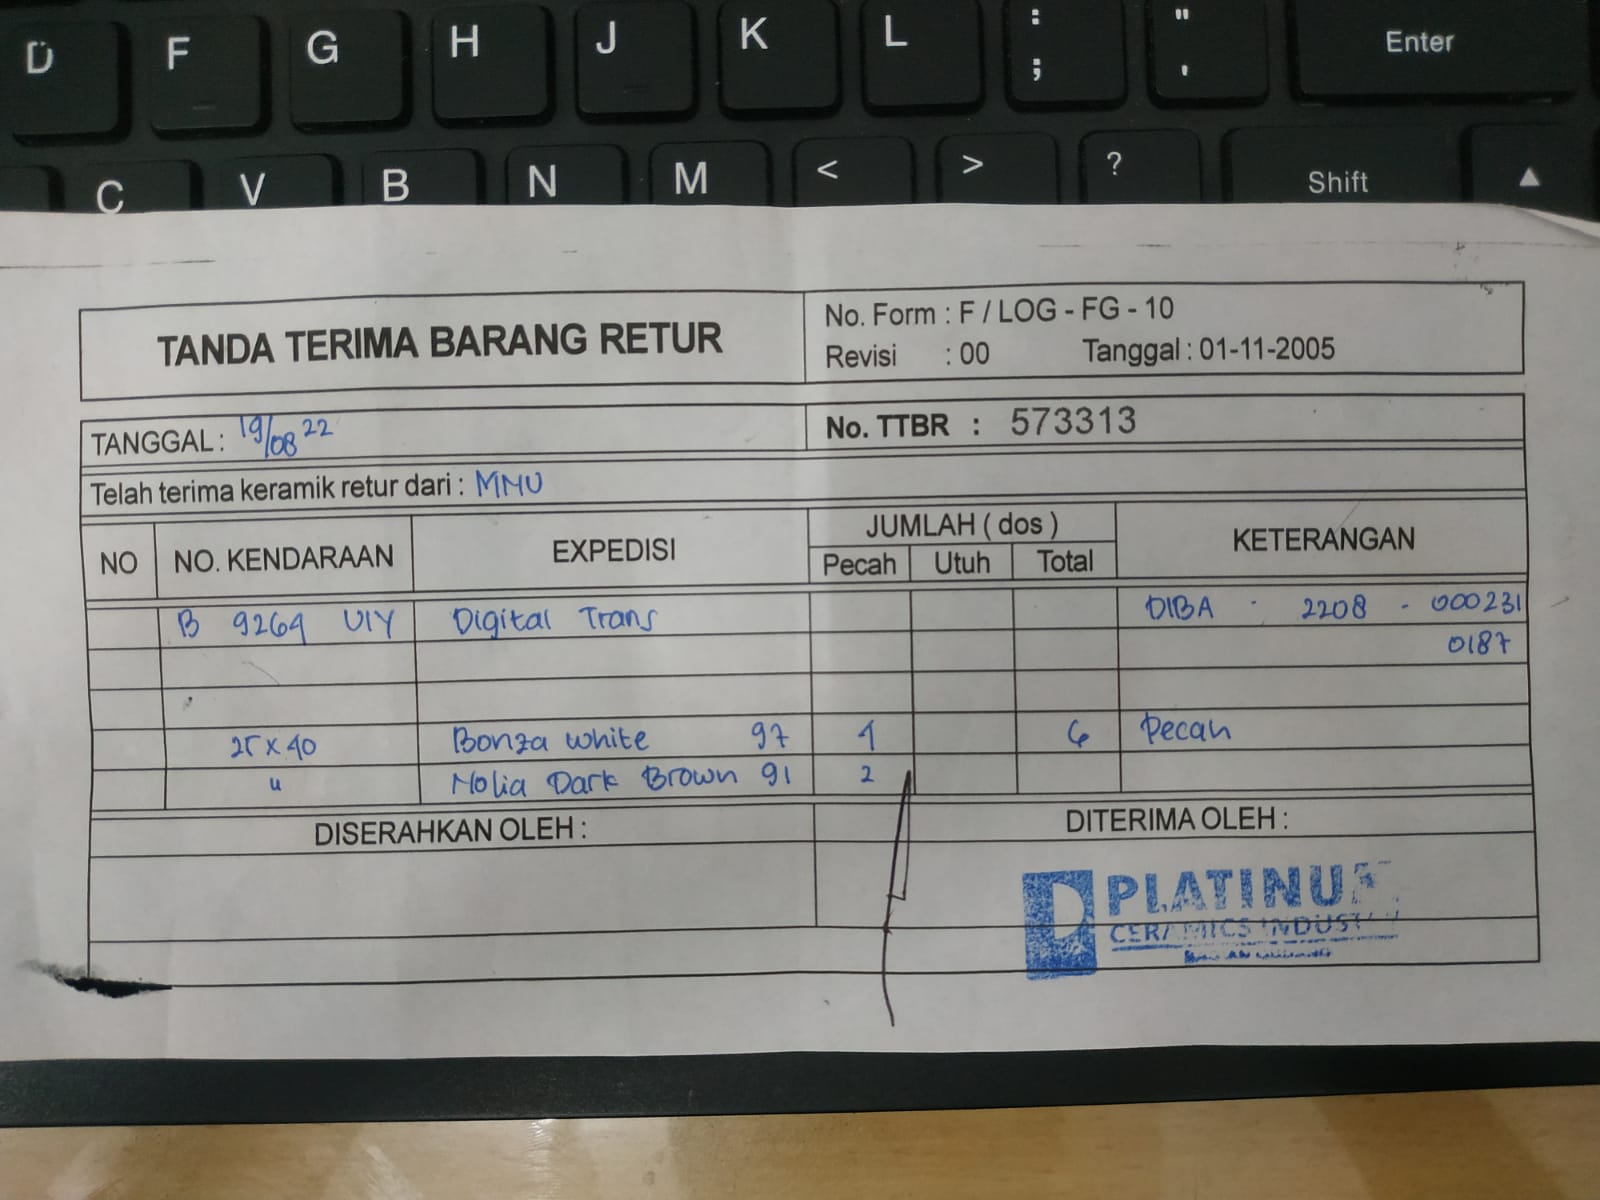 D F G H J K L : ; " ' Enter
C V B N M < > ? Shift ▲
TANDA TERIMA BARANG RETUR
No. Form : F / LOG - FG - 10
Revisi : 00 Tanggal : 01-11-2005
TANGGAL : 19/08 22
No. TTBR : 573313
Telah terima keramik retur dari : MMU
NO NO. KENDARAAN EXPEDISI JUMLAH ( dos ) KETERANGAN
Pecah Utuh Total
B 9264 UIY Digital Trans DIBA - 2208 - 000231
0187
25 x 40 Bonza White 97 4 6 Pecah
" Molia Dark Brown 91 2
DISERAHKAN OLEH : DITERIMA OLEH :
PLATINUM
CERAMICS INDUSTRY